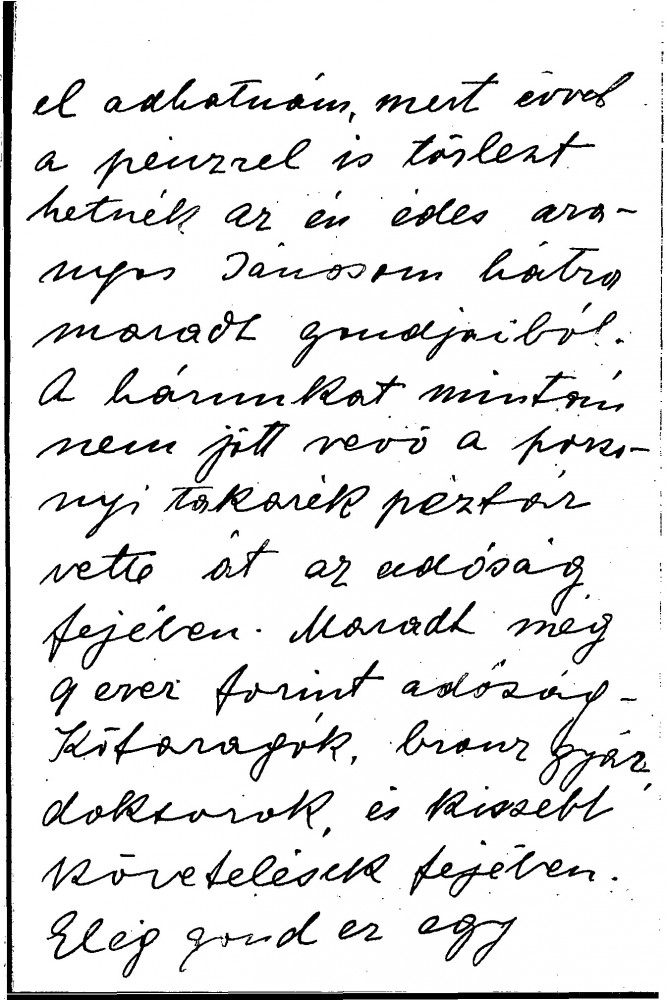 el adhatnám, mert évvel
a pénzzel is törleszt
hetnék az én édes ara-
nyos Jánosom hátra
maradt gondjaiból.
A házunkat mintán
nem jött vevő a pozso-
nyi takarék péztár
vette át az adóság
fejében. Maradt még
9 ezer forint adóság-
Kőfaragók, bronz gyár,
doktorok, és kissebb
követelések fejében.
Elég gond ez egy